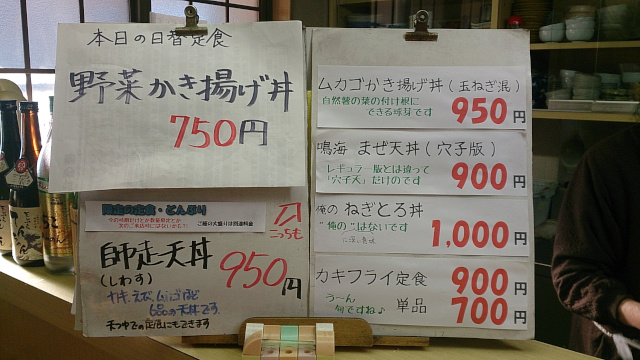 本日の日替定食
野菜かき揚げ丼
750円
ご飯の大盛りは別途料金
こっちも
師走天丼
(しわす)
950円
カキ、エビ、ムカゴなど
6品の天丼です
天つゆでの定食にもできます
ムカゴかき揚げ丼(玉ねぎ混)
自然薯の葉の付け根に
できる球芽です
950円
鳴海 まぜ天丼(穴子版)
レギュラー版とは違って
「穴子天」だけのです
900円
俺の ねぎとろ丼
"俺の"はないです
1,000円
カキフライ定食 900円
う~ん
旬ですね♪
単品 700円